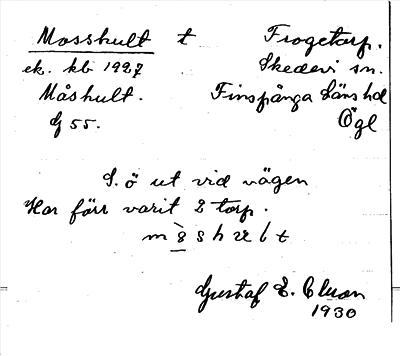 Mosshult t Frogetorp.
ek. kb 1927 Skedevi sn.
Måshult. Finspånga Läns hd
G 55. Ögl
S. ö ut vid vägen
Har förr varit 2 torp.
Gustaf E.
1930